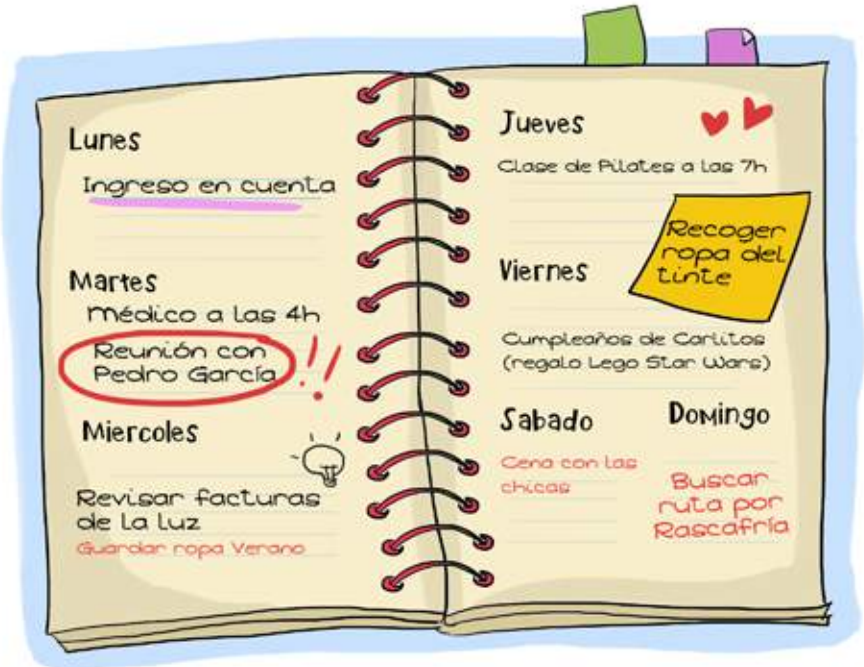 Lunes
Ingreso en cuenta
Martes
Médico a las 4h
Reunión con
Pedro García
!!
Miercoles
Revisar facturas
de la luz
Guardar ropa Verano
Jueves
Clase de Pilates a las 7h
Recoger
ropa del
tinte
Viernes
Cumpleaños de Carlitos
(regalo Lego Star Wars)
Sabado
Cena con las
chicas
Domingo
Buscar
ruta por
Rascafría